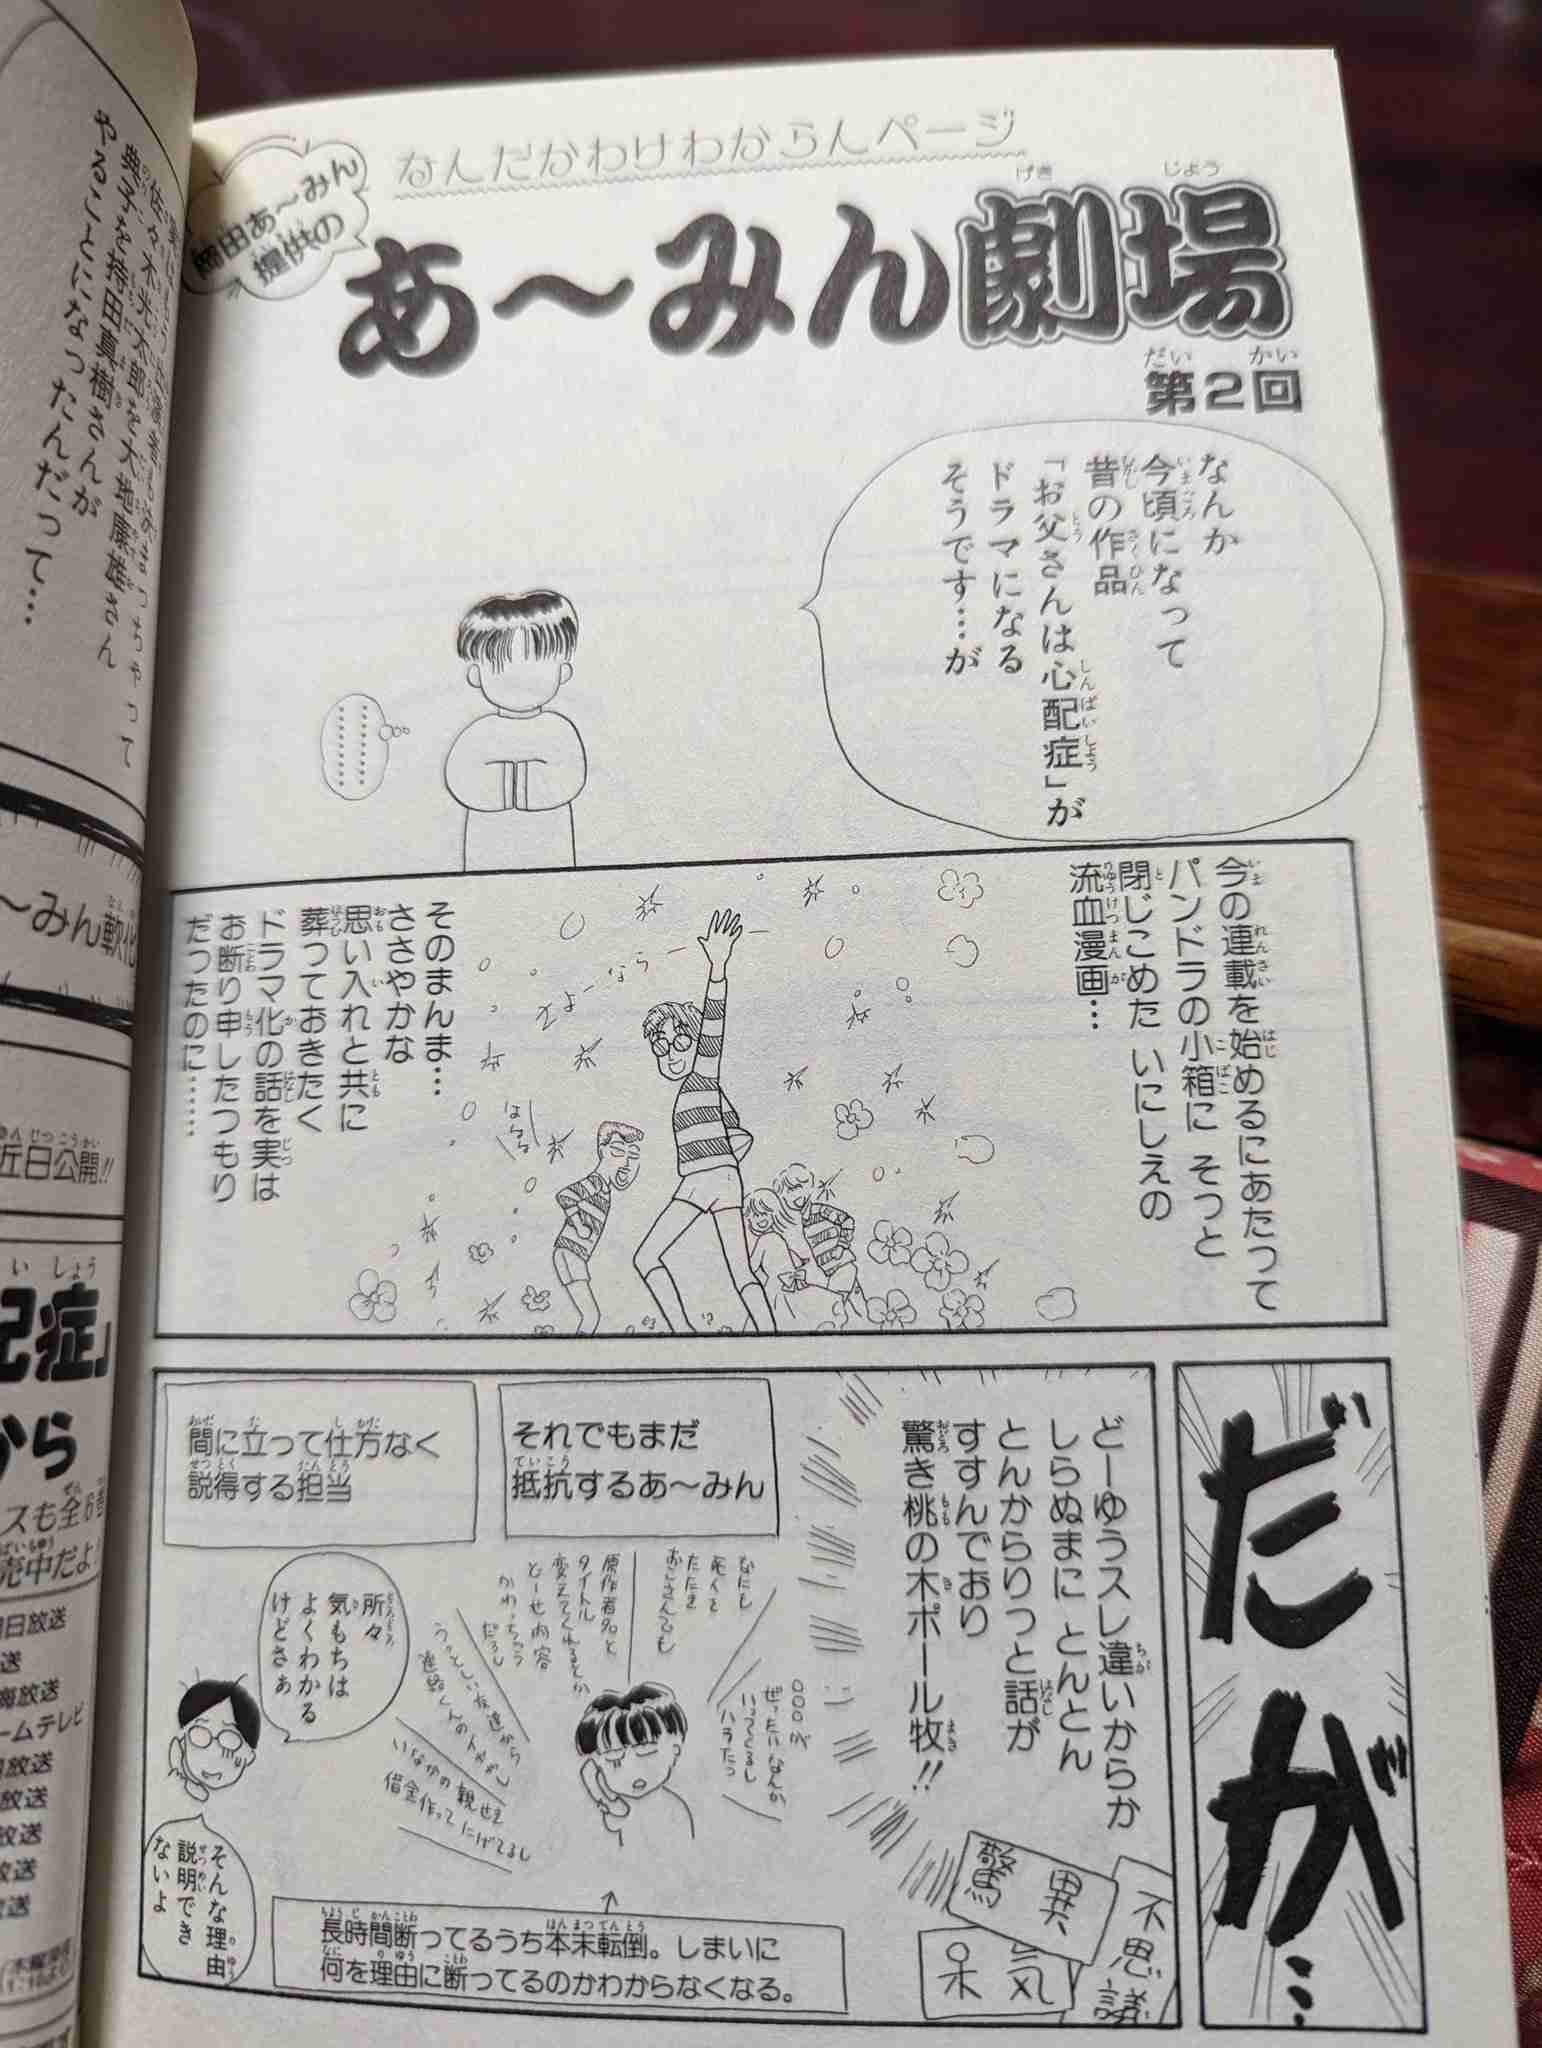 なんだかわけわからんページ
岡田あ〜みん
提供の
あ〜みん劇場
第2回
なんか
今頃になって
昔の作品
「お父さんは心配症」が
ドラマになる
そうです…が
今の連載を始めるにあたって
パンドラの小箱に そっと
閉じこめた いにしえの
流血漫画…
さよーならー
ほらら
そのまんま…
ささやかな
思い入れと共に
葬っておきたく
ドラマ化の話を実は
お断り申したつもり
だったのに……
だが…
どーゆうスレ違いからか
しらぬまに とんとん
とんからりっと話が
すすんでおり
驚き桃の木ポール牧!!
驚異
不思議
呆気
それでもまだ
抵抗するあ〜みん
なにも
死人を
たたき
おこさんでも
原作者名と
タイトル
変えてくれるとか
どーせ内容
かわっちゃう
だろし
うっとしい友達から
連絡くんのヤだし
いなかの親せき
借金作ってにげてるし
ぜったいなんか
いってくるし
ハラたつ
間に立って仕方なく
説得する担当
所々
気もちは
よくわかる
けどさぁ
そんな理由
説明でき
ないよ
長時間断ってるうち本末転倒。しまいに
何を理由に断ってるのかわからなくなる。
佐々木光太郎を大地康雄さん
典子を持田真樹さんが
やることになったんだって…
〜みん軟化
近日公開!!
配症」
から
スも全6巻
売中だよ!
日放送
送
海放送
ームテレビ
放送
放送
放送
放送
放送